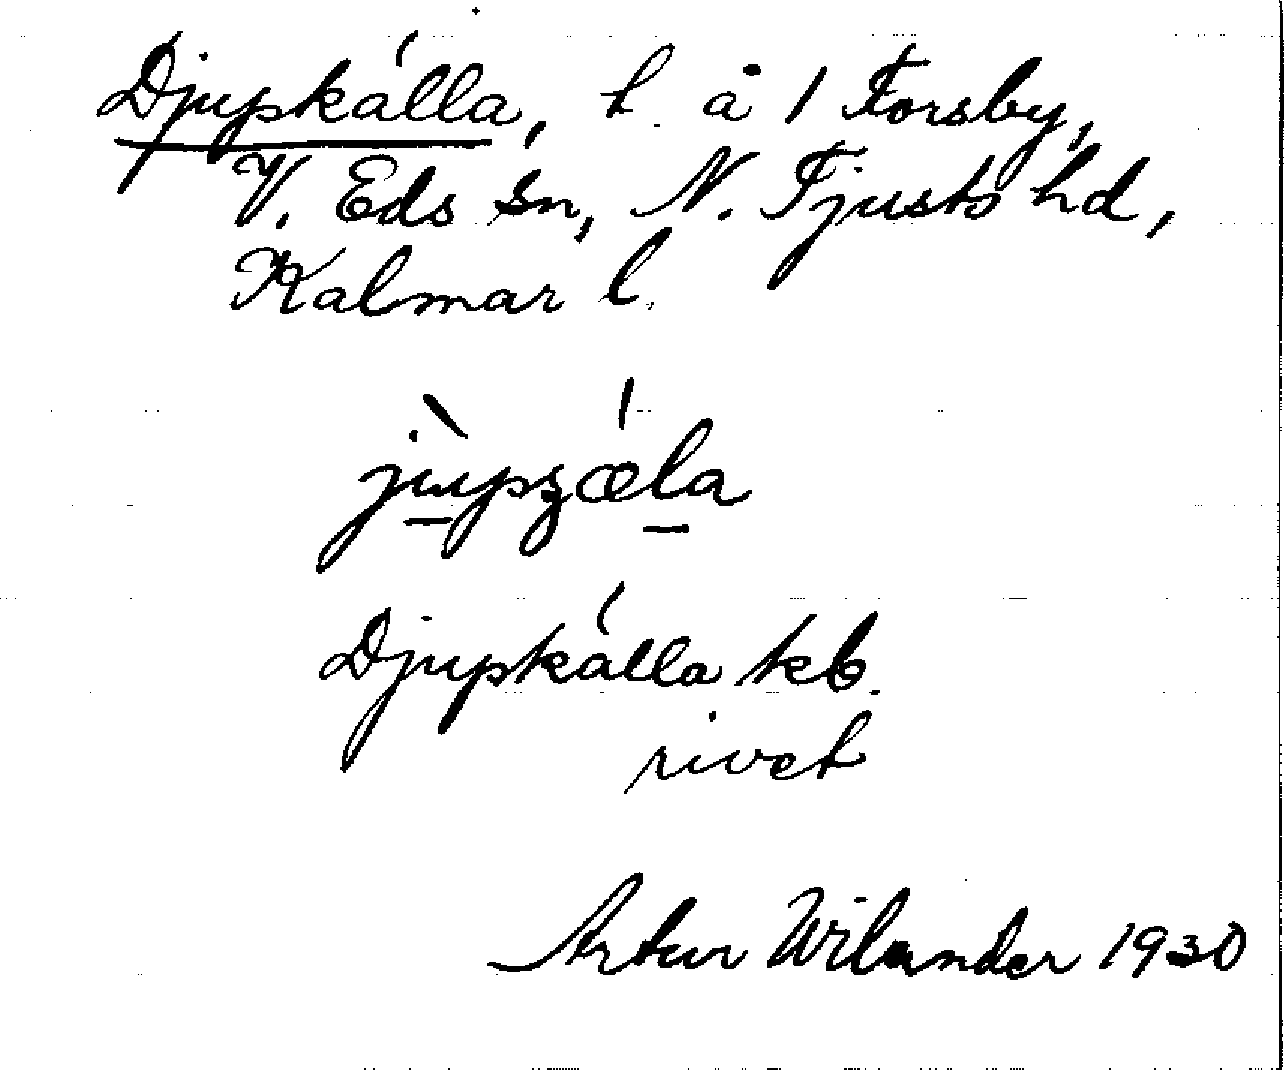 Djupkälla, t. å 1 Forsby,
V. Eds sn, N. Tjusts hd,
Kalmar l.
Djupkälla kb.
rivet
Artur Wilander 1930